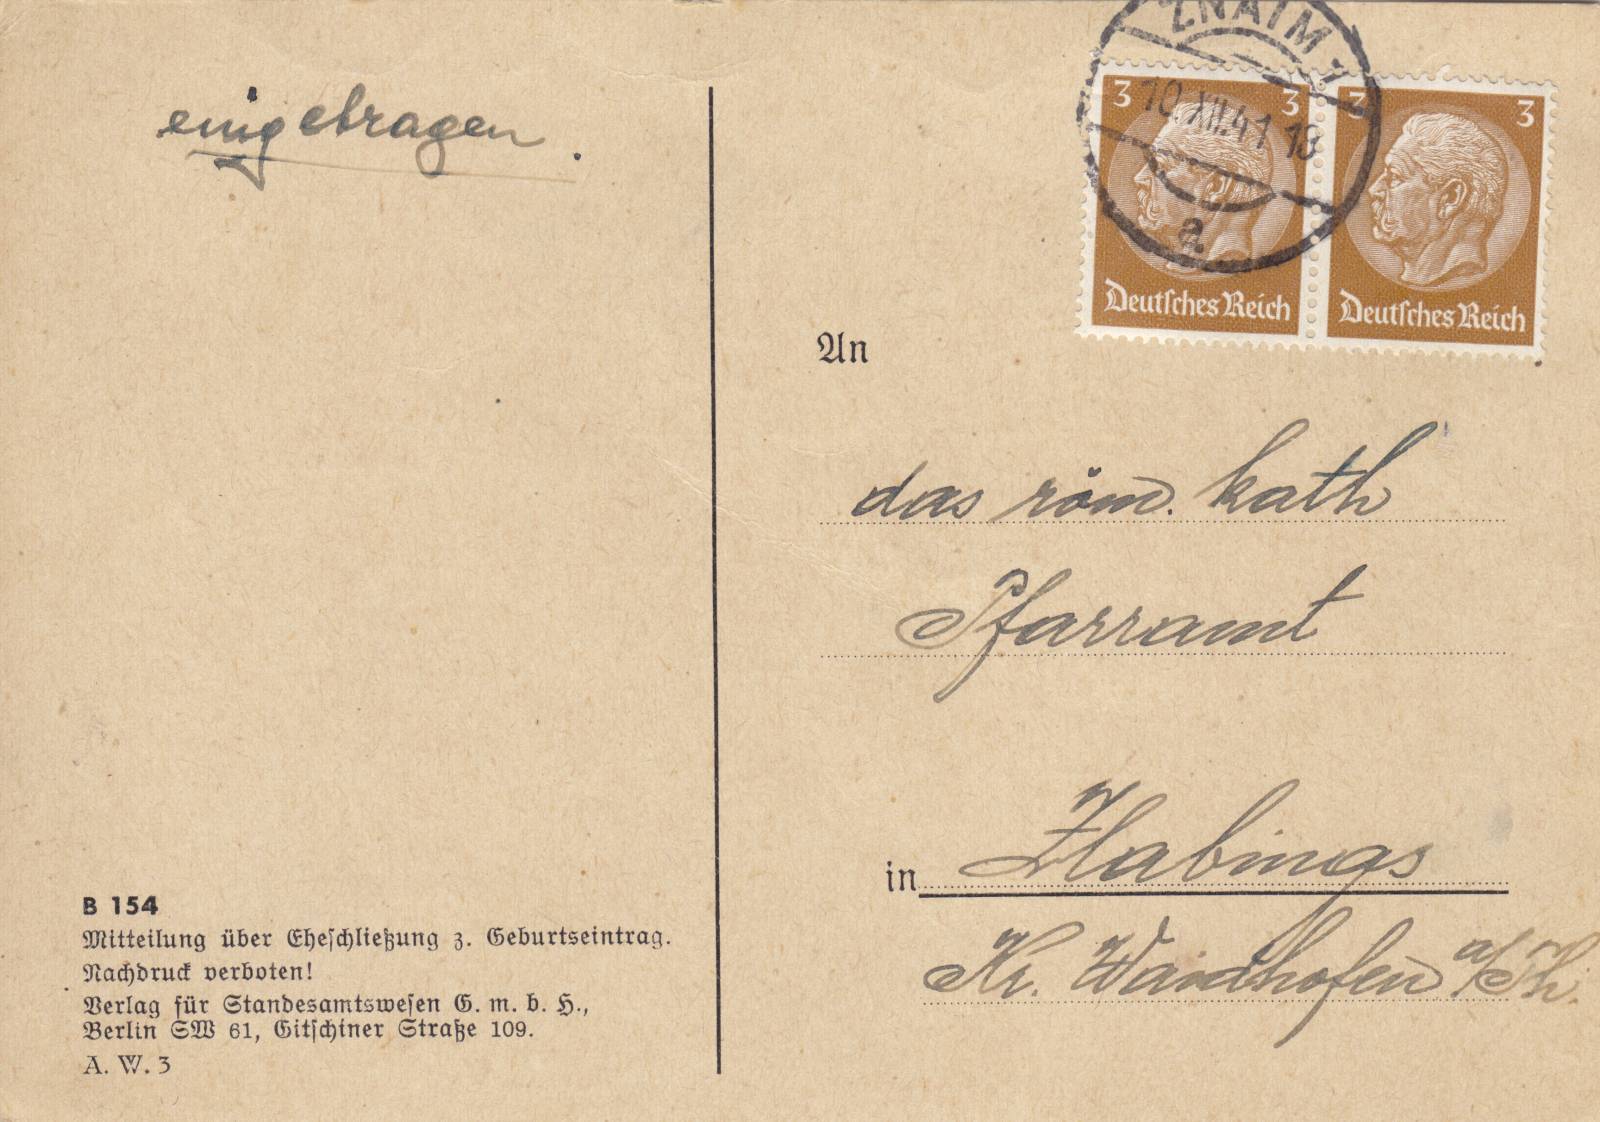 eingetragen.
ZNAIM 1
10.XII.41 13
a
3 3
Deutsches Reich
3 3
Deutsches Reich
An
das röm. kath
Pfarramt
in Zlabings
Kr. Waidhofen a/Th.
B 154
Mitteilung über Eheschließung z. Geburtseintrag.
Nachdruck verboten!
Verlag für Standesamtswesen G. m. b. H.,
Berlin SW 61, Gitschiner Straße 109.
A. W. 3